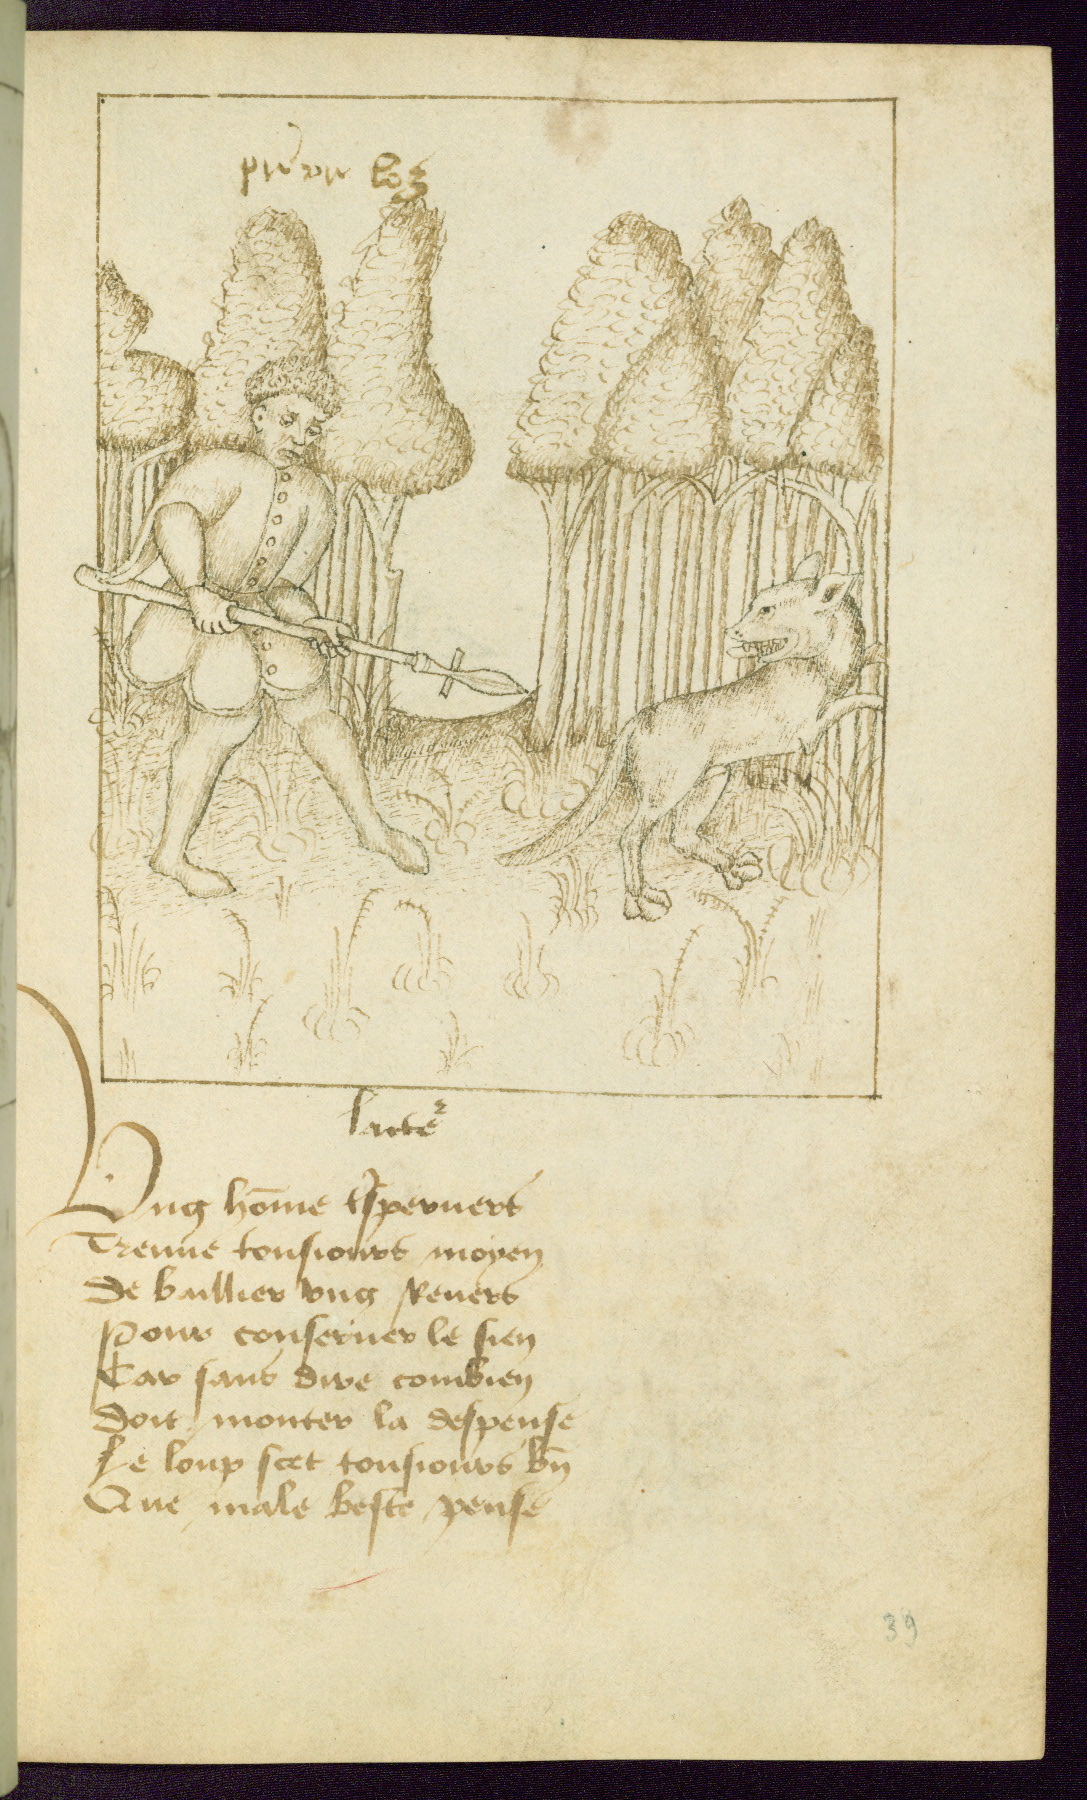 lacteᷣ
Ung hōme tˢperuers
Treuue tousiours moyen
De baillier vng Reuers
Pour conseruer le sien
Car sans dire combien
Doit monter la despense
Le loup scet tousiours bn̄
Que male beste pense
39